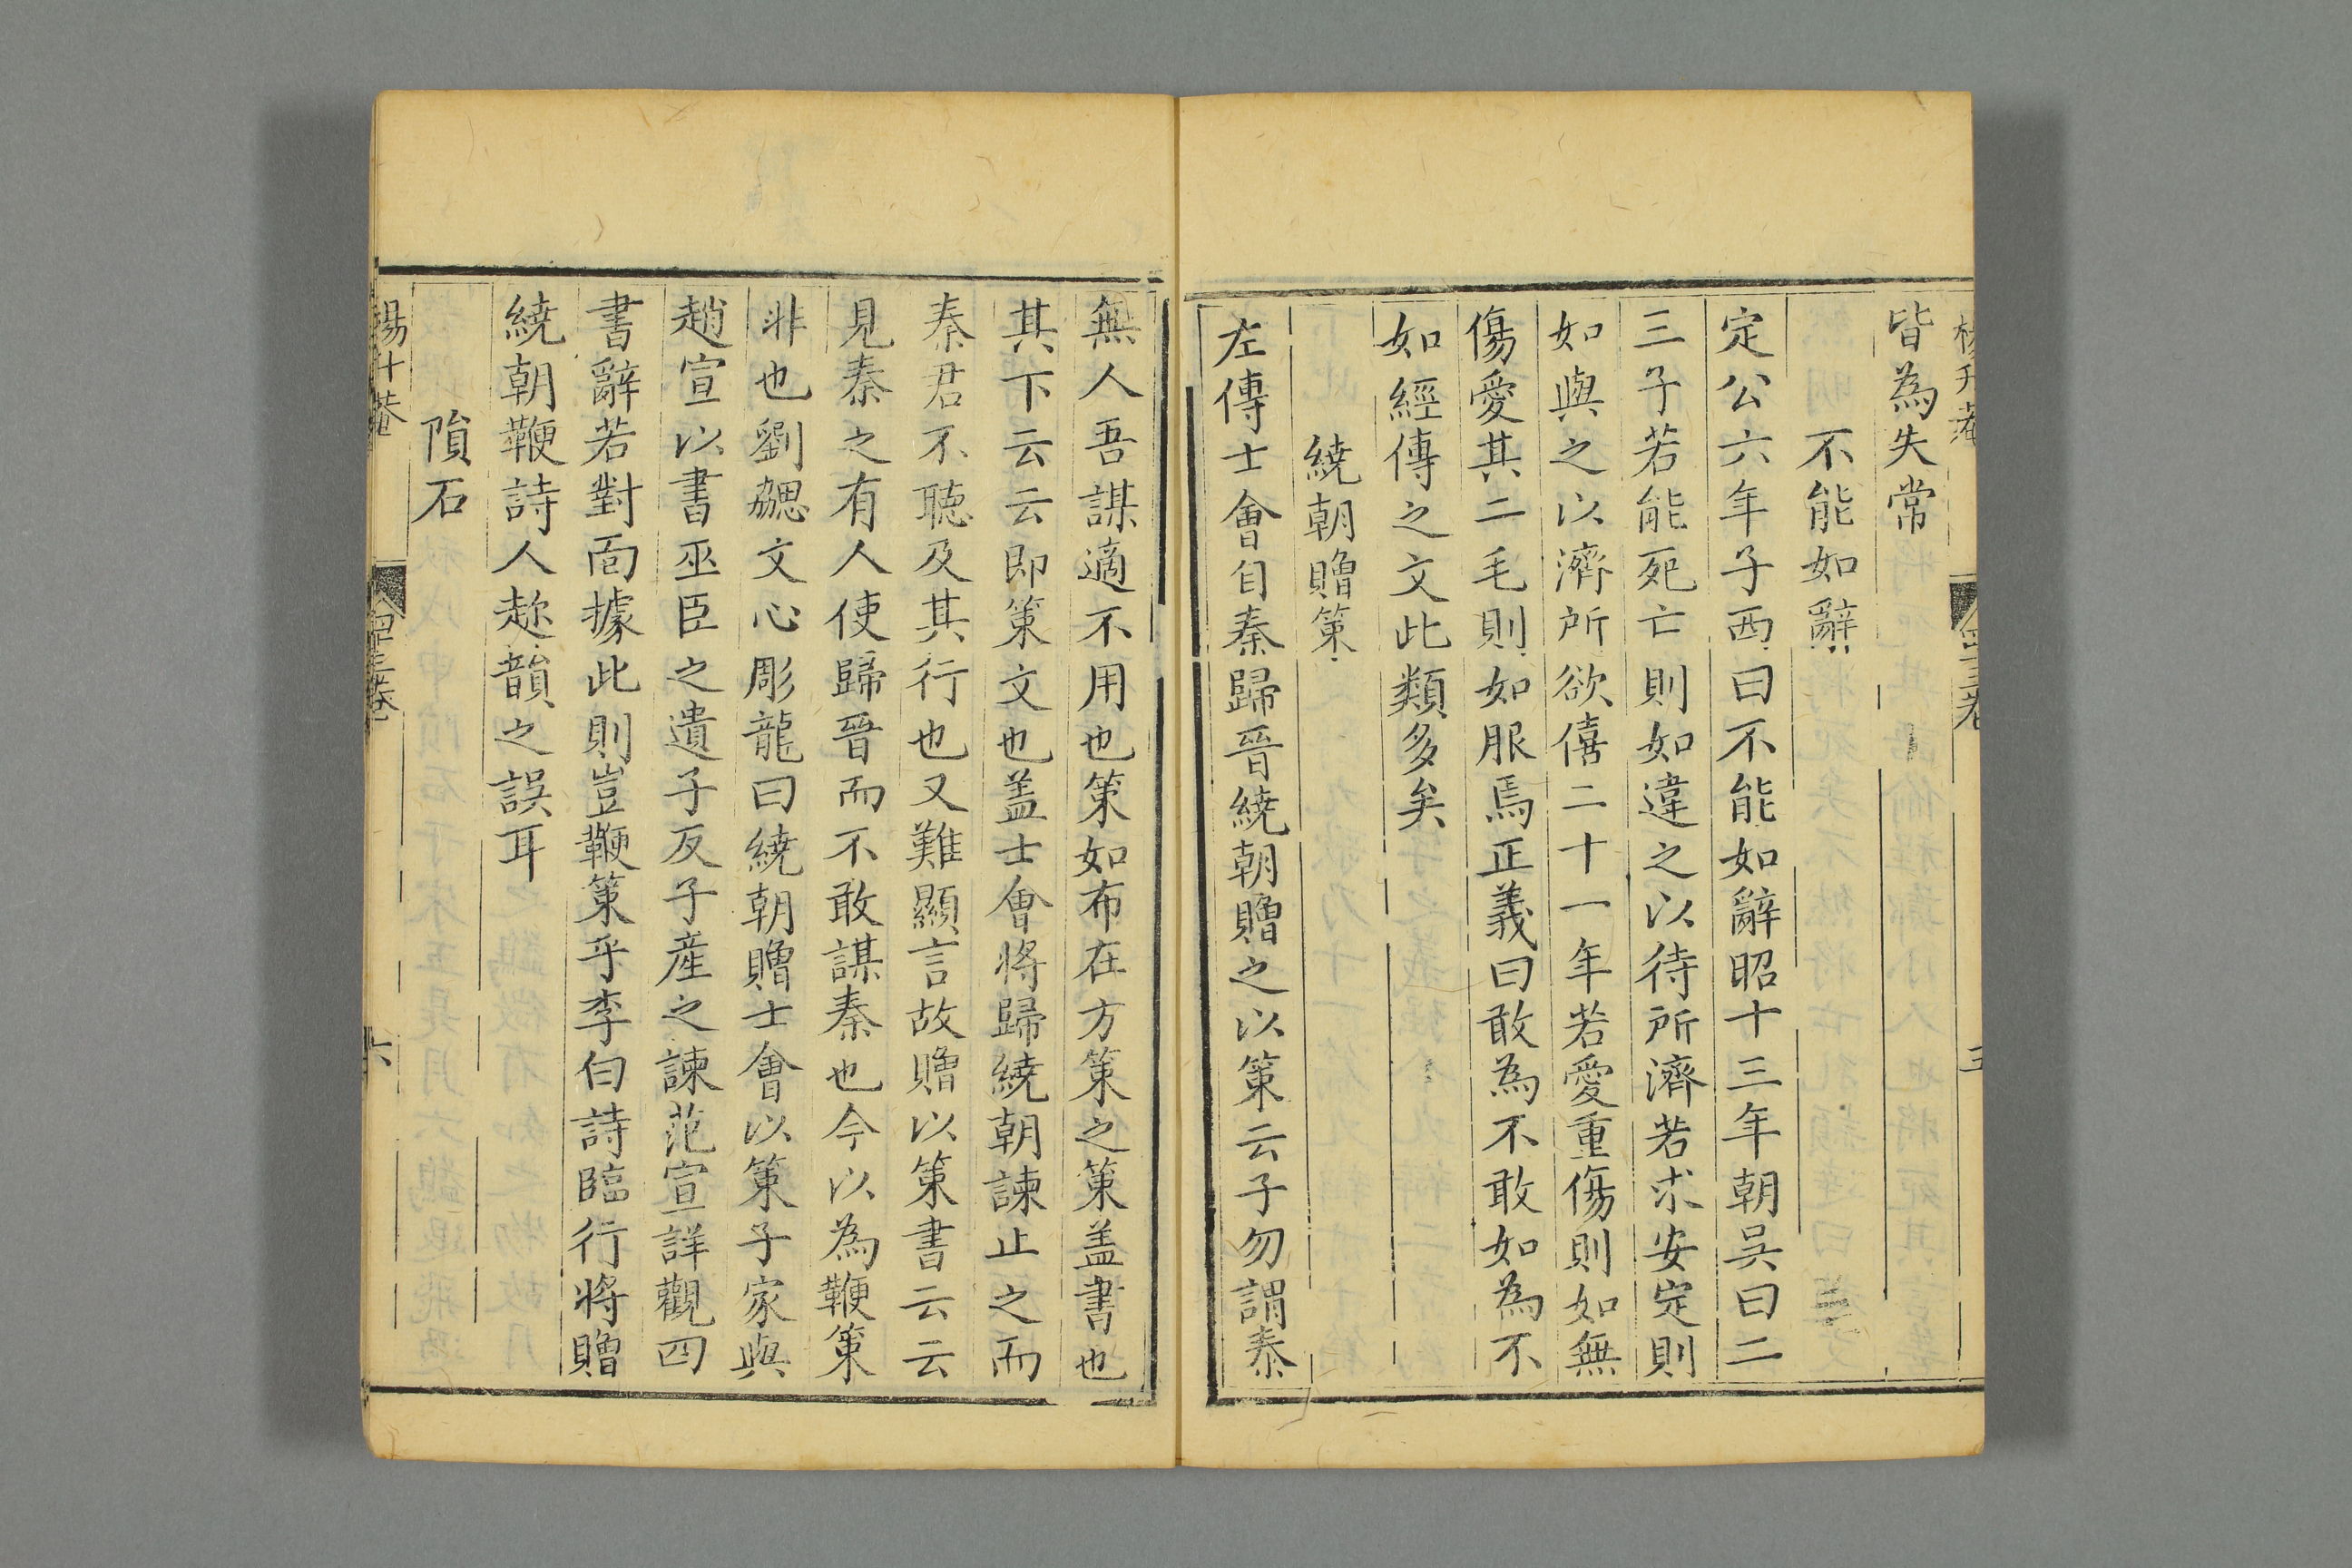 皆為失常
不能如辭
定公六年子西曰不能如辭昭十三年朝吳曰二
三子若能死亡則如違之以待所濟若求安定則
如與之以濟所欲僖二十一年若愛重傷則如無
傷愛其二毛則如服焉正義曰敢為不敢如為不
如經傳之文此類多矣
繞朝贈策
左傳士會自秦歸晉繞朝贈之以策云子勿謂秦
無人吾謀適不用也策如布在方策之策盖書也
其下云云即策文也盖士會將歸繞朝諫止之而
秦君不聴及其行也又難顯言故贈以策書云云
見秦之有人使歸晉而不敢謀秦也今以為鞭策
非也劉勰文心彫龍曰繞朝贈士會以策子家與
趙宣以書巫臣之遺子反子產之諫范宣詳觀四
書辭若對面據此則豈鞭策乎李白詩臨行將贈
繞朝鞭詩人趂韻之誤耳
隕石
六